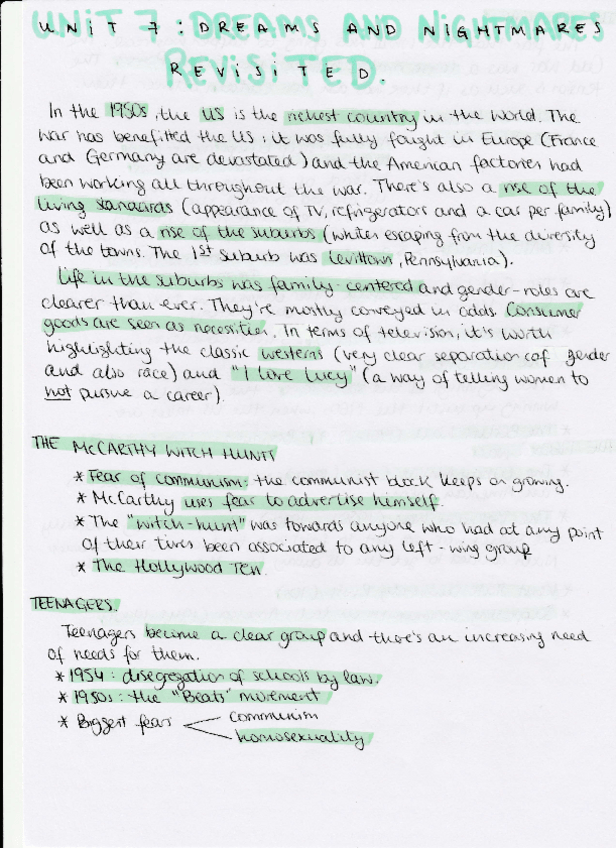 UNIT 7: DREAMS AND NIGHTMARES
REVISITED.
In the 1950s, the US is the richest country in the world. The
war has benefitted the US: it was fully fought in Europe (France
and Germany are devastated) and the American factories had
been working all throughout the war. There's also a rise of the
living standards (appearance of TV, refrigerators and a car per family)
as well as a rise of the suburbs (whites escaping from the diversity
of the towns. The 1st suburb was Levittown, Pennsylvania).
Life in the suburbs was family-centered and gender-roles are
clearer than ever. They're mostly conveyed in adds. Consumer
goods are seen as necessities. In terms of television, it's worth
highlighting the classic westerns (very clear separation of gender
and also race) and "I love Lucy" (a way of telling women to
not pursue a career).
THE McCARTHY WITCH HUNTS
* Fear of communism: the communist block keeps on growing.
* McCarthy uses fear to advertise himself.
* The "witch-hunt" was towards anyone who had at any point
of their lives been associated to any left-wing group
* The Hollywood Ten.
TEENAGERS.
Teenagers become a clear group and there's an increasing need
of needs for them.
* 1954: disegregation of schools by law.
* 1950s: the "Beats" movement
* Biggest fears
communism
homosexuality